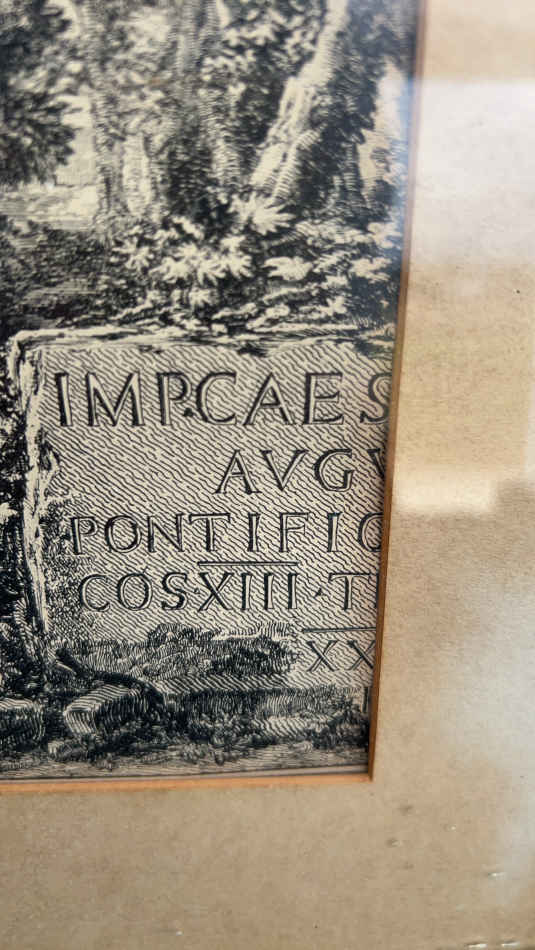 IMP·CAES
AVGV
PONTIFIC
COS·XIII·T
XX